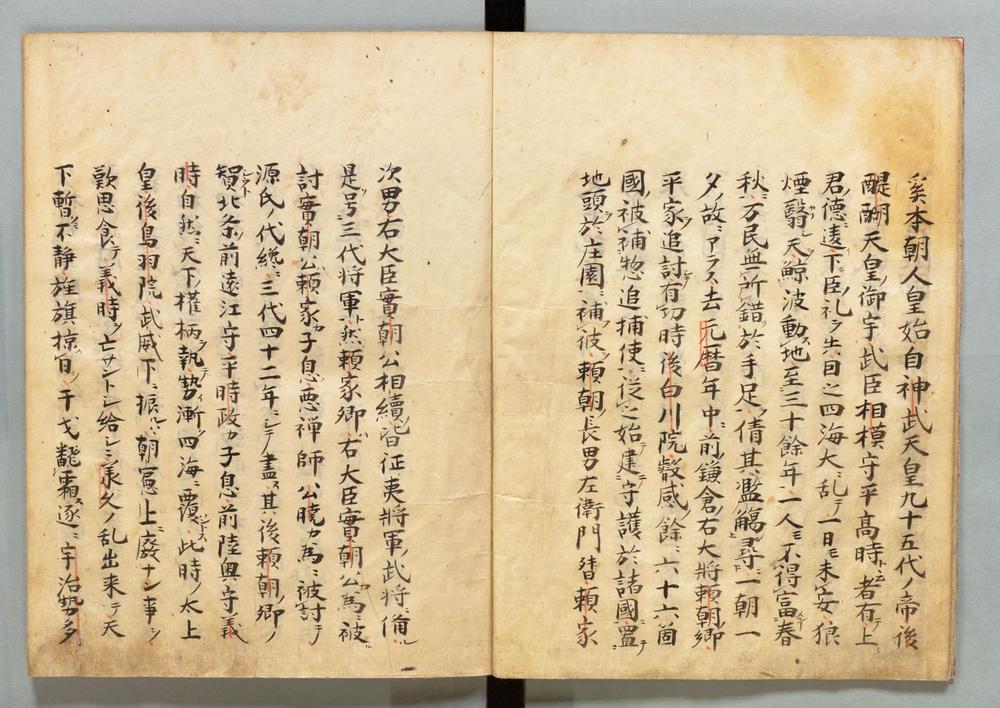 爰本朝人皇始自神武天皇九十五代ノ帝後
醍醐天皇ノ御宇武臣相模守平高時ト云者有テ上
君ノ德ニ違下臣ノ礼ヲ失自之四海大ニ乱テ一日モ未安狼
煙翳天鯨波動地至三十餘年一人モ不得富春
秋ニ万民無所錯於手足倩其濫觴ヲ尋ニ一朝一
夕ノ故ニアラス去元暦年中ニ前鎌倉ノ右大将頼朝卿
平家ヲ追討シテ有功時後白川院叡感ノ餘ニ六十六箇
國ノ被補惣追捕使ニ従之始テ建守護於諸國ニ置
地頭於庄園ニ補彼頼朝ノ長男左衛門督頼家
次男右大臣實朝公相續皆征夷将軍ノ武将ニ備ル
是ヲ号三代将軍ト然頼家卿ハ右大臣實朝公ノ為ニ被
討實朝公ハ頼家カ子息悪禅師公暁カ為ニ被討テ
源氏ノ代纔ニ三代四十二年ニシテ盡ヌ其後頼朝卿ノ
賀北条前遠江守平時政カ子息前陸奥守義
時自然ニ天下ノ權柄ヲ執勢漸四海ヲ覆ントス此時ノ太上
皇後鳥羽院武威下ニ振ハ朝憲上ニ廢ナン事ヲ
歎思食テ義時ヲ亡サントシ給シニ承久ノ乱出来テ天
下暫モ不静旌旗掠日ヲ干戈霜逐ニ宇治勢多